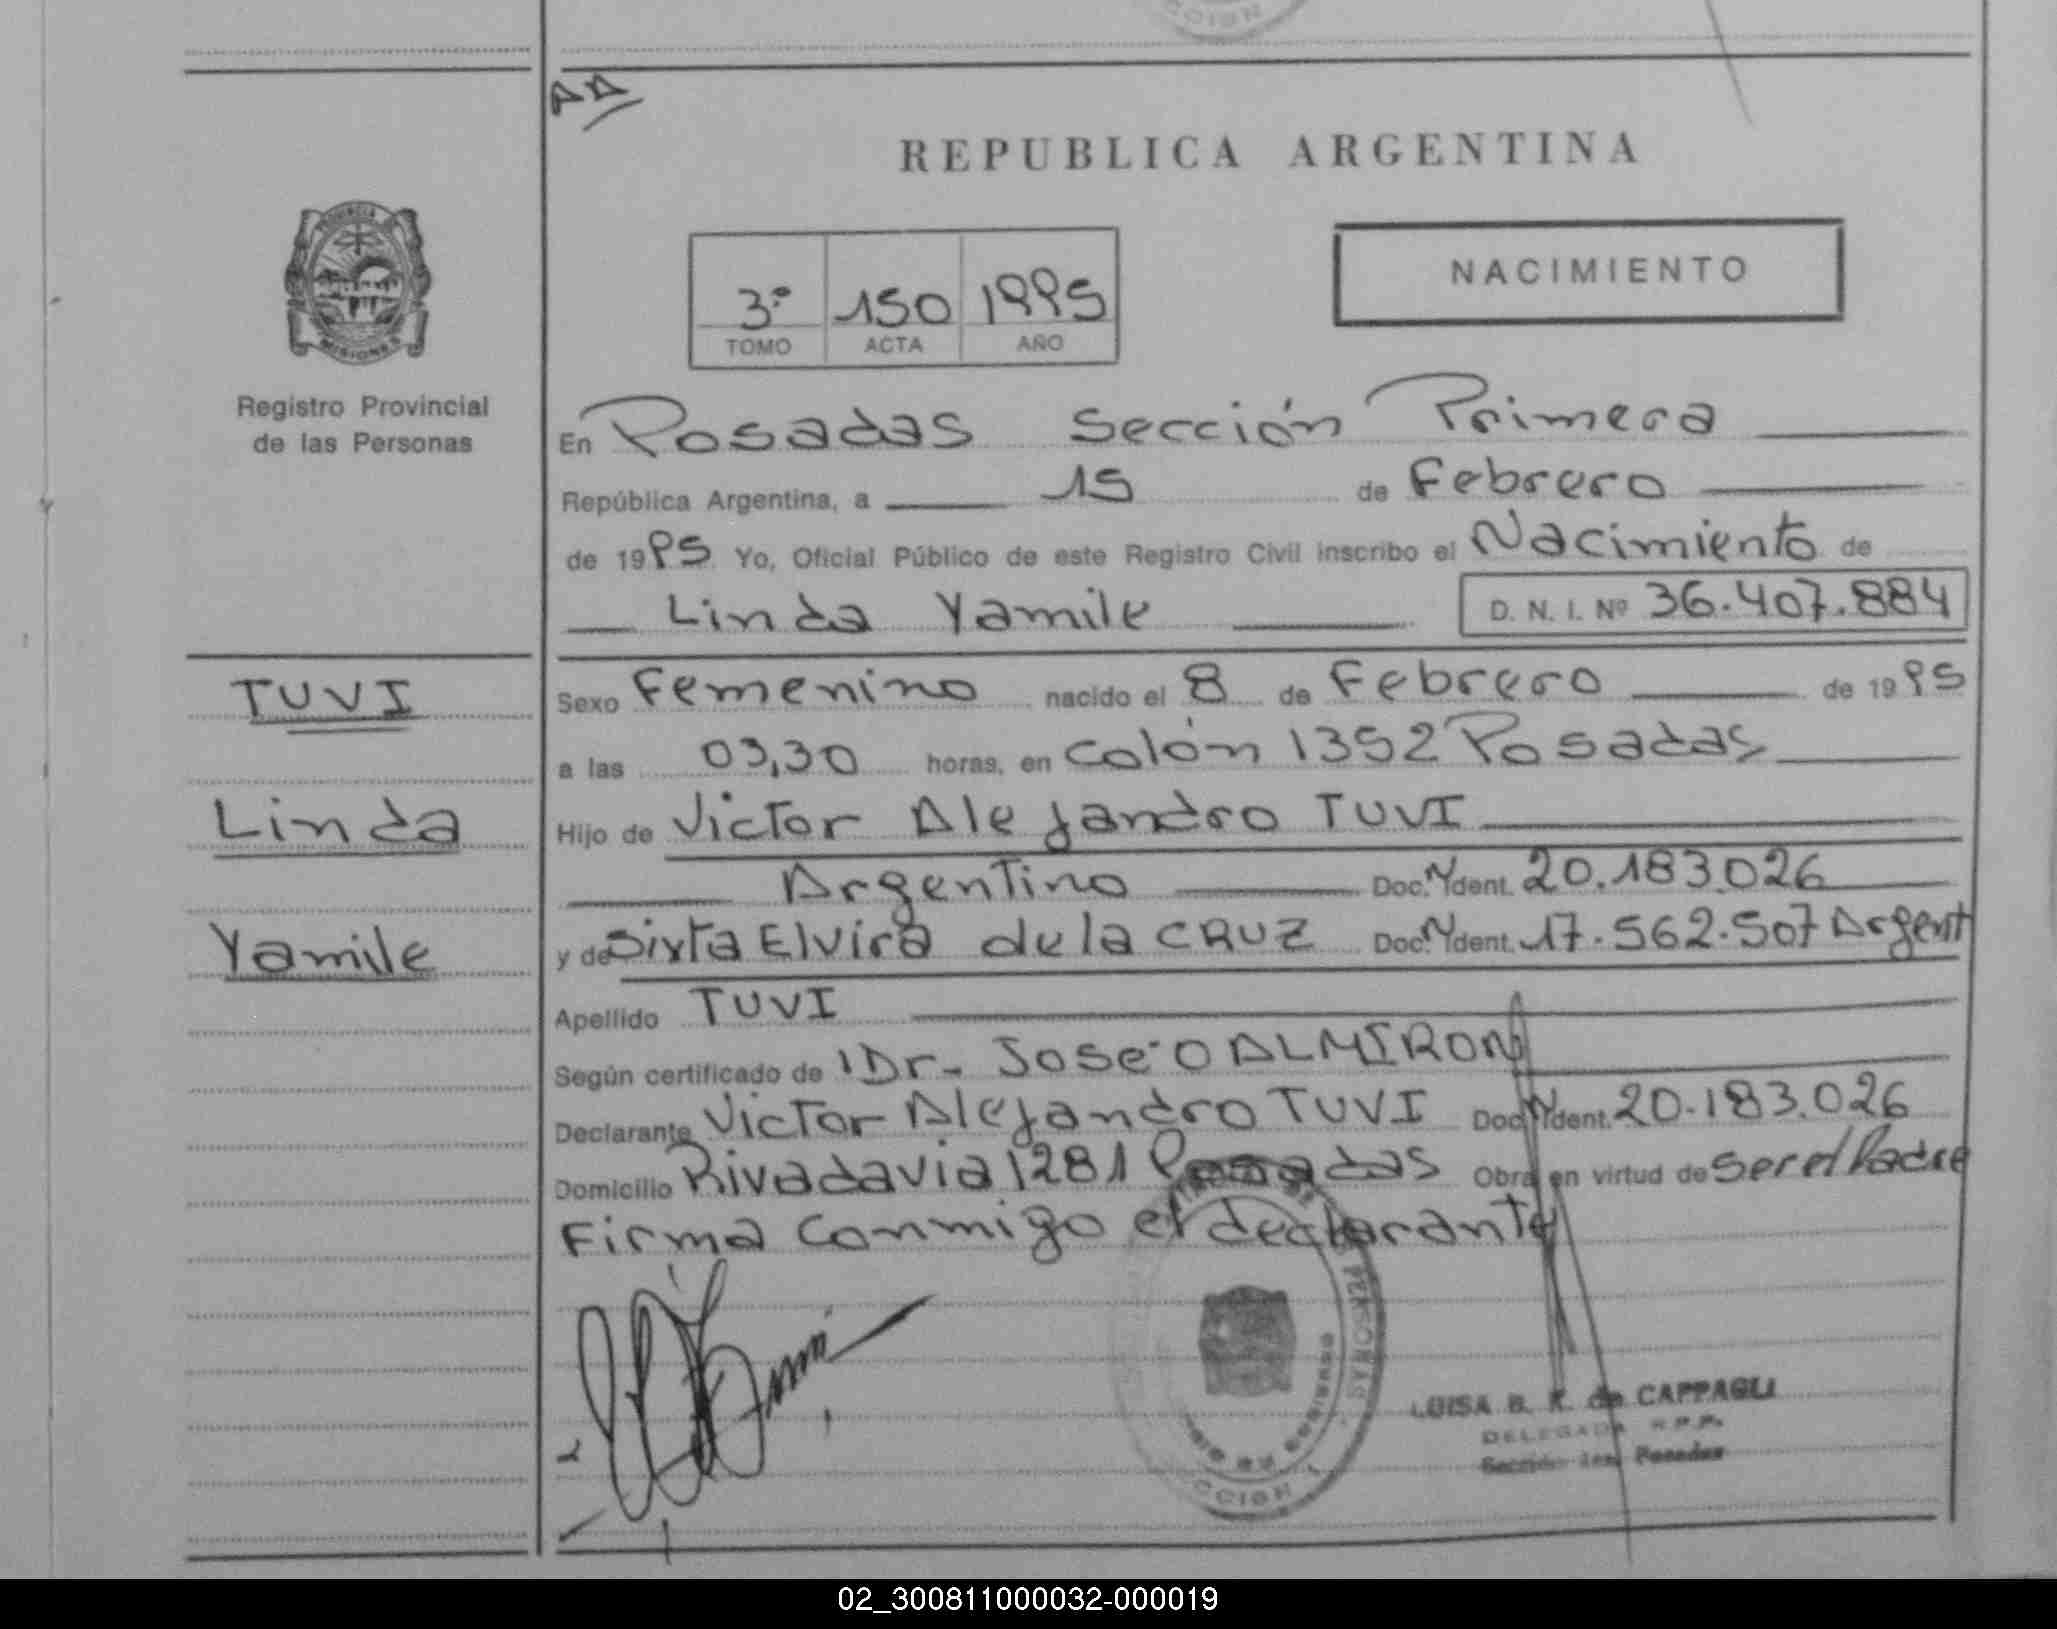 CCION
AA
REPUBLICA ARGENTINA
PROVINCIA
MISIONES
Registro Provincial
de las Personas
3º 150 1995
TOMO ACTA AÑO
NACIMIENTO
En Posadas Sección Primera
República Argentina, a 15 de Febrero
de 1995 Yo, Oficial Público de este Registro Civil inscribo el Nacimiento de
Linda Yamile D. N. I. Nº 36.407.884
TUVI
Linda
Yamile
Sexo Femenino nacido el 8 de Febrero de 1995
a las 03,30 horas, en Colón 1352 Posadas
Hijo de Victor Alejandro TUVI
Argentino Doc. Ident. 20.183.026
y de Sixta Elvira de la CRUZ Doc. Ident. 17.562.507 Argent
Apellido TUVI
Según certificado de Dr. Jose O ALMIRON
Declarante Victor Alejandro TUVI Doc. Ident. 20.183.026
Domicilio Rivadavia 1281 Posadas Obra en virtud de Ser el Padre
Firma conmigo el declarante
PERSONAS
CCION
LUISA B. K. de CAPPAGLI
DELEGADA R.P.P.
Sección 1ra. Posadas
02_300811000032-000019